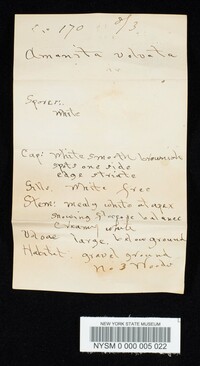 170 8/3
Amanita volvata
Spores:
White
Cap: White smooth brownish
spots one side
edge striate
Gills: White free
Stem: mealy white at apex
below
Creamy white
Volvae large, below ground
Habitat: gravel ground
No 3 Woods
NEW YORK STATE MUSEUM
NYSM 0 000 005 022